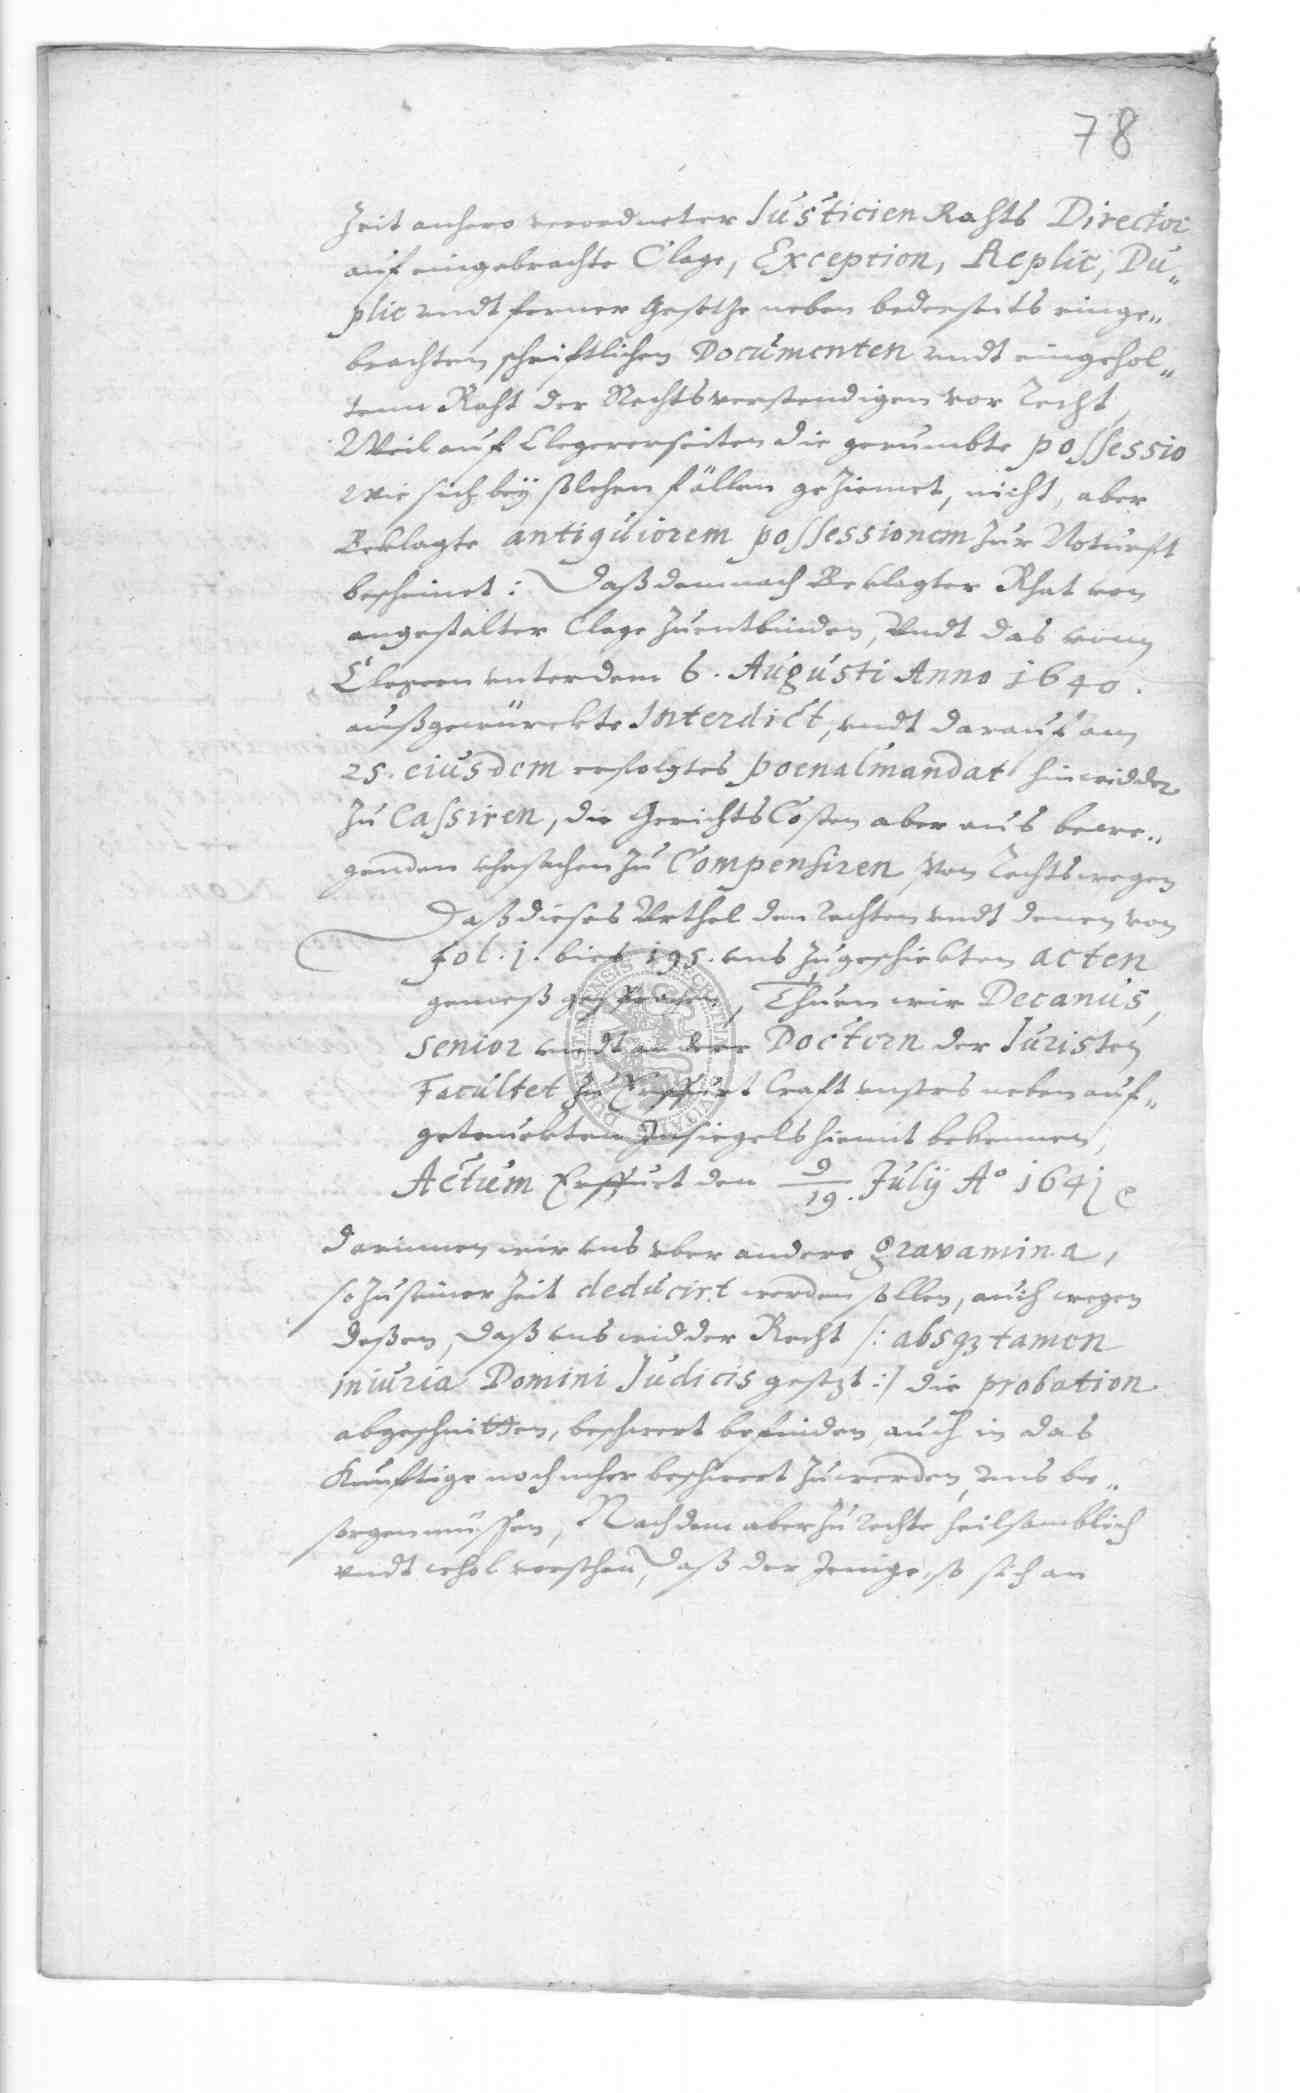 78
Zeit anhero verordneter Justicien Rahts Director
auf eingebrachte Clage, Exception, Replic, Du„
plic undt ferner Gesetze neben bederseits einge„
brachten schriftlichen Documenten undt eingehol„
tenn Raht der Rechtsverstendigen vor Recht,
Weil auf Clegererseiten die gerumbte possessio
wie sich bey solchen fällen geziemet, nicht, aber
Beklagte antiquiorem possessionem zur Noturft
bescheinet: Daß demnach Beklagter Rhat von
angestalter Clage zuentbinden, Undt das vonn
Clegern unterdem 6. Augusti Anno 1640.
außgewürckte Interdict, undt darauf am
25. eiusdem erfolgtes poenalmandat hinwidder
zu Cassiren, die GerichtsCosten aber aus bewe„
genden Uhrsachen zu Compensiren, Von Rechtswegen
Daß dieses Urthel den Rechten undt denen von
fol. 1. bies 195. uns zugeschickten acten
gemeß gesprochen, Thuen wir Decanus,
Senior undt andere Doctorn der Juristen
Facultet zu Erffurt Craft unsers neben auf„
getruckten Insiegels hiemit bekennen,
Actum Erffurt den 9/19. July Aº 1641
darinnen wir uns uber andere gravamina,
so zu seiner Zeit deducirt werden sollen, auch wegen
deßen, daß uns widder Recht /: absqz tamen
iniuria Domini Judicis gesetzt :/ die probation
abgeschnitten, beschwert befinden, auch in das
Kunftige noch mehr beschwert zuwerden, uns be„
sorgen müssen, Nachdem aber zu Rechte heilsamblich
undt wohl versehen, Daß der Jenige, so sich an